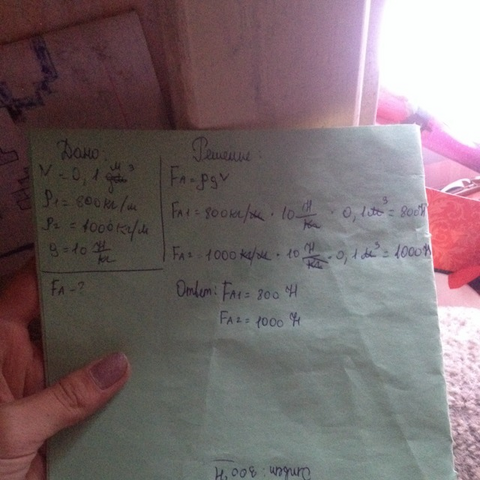 Дано:
V = 0,1 м³
ρ1 = 800 кг/м
ρ2 = 1000 кг/м
g = 10 Н/кг
FA - ?
Решение:
FA = ρgV
FA1 = 800 кг/м · 10 Н/кг · 0,1 м³ = 800 Н
FA2 = 1000 кг/м · 10 Н/кг · 0,1 м³ = 1000 Н
Ответ: FA1 = 800 Н
FA2 = 1000 Н
Ответ: 300 Н